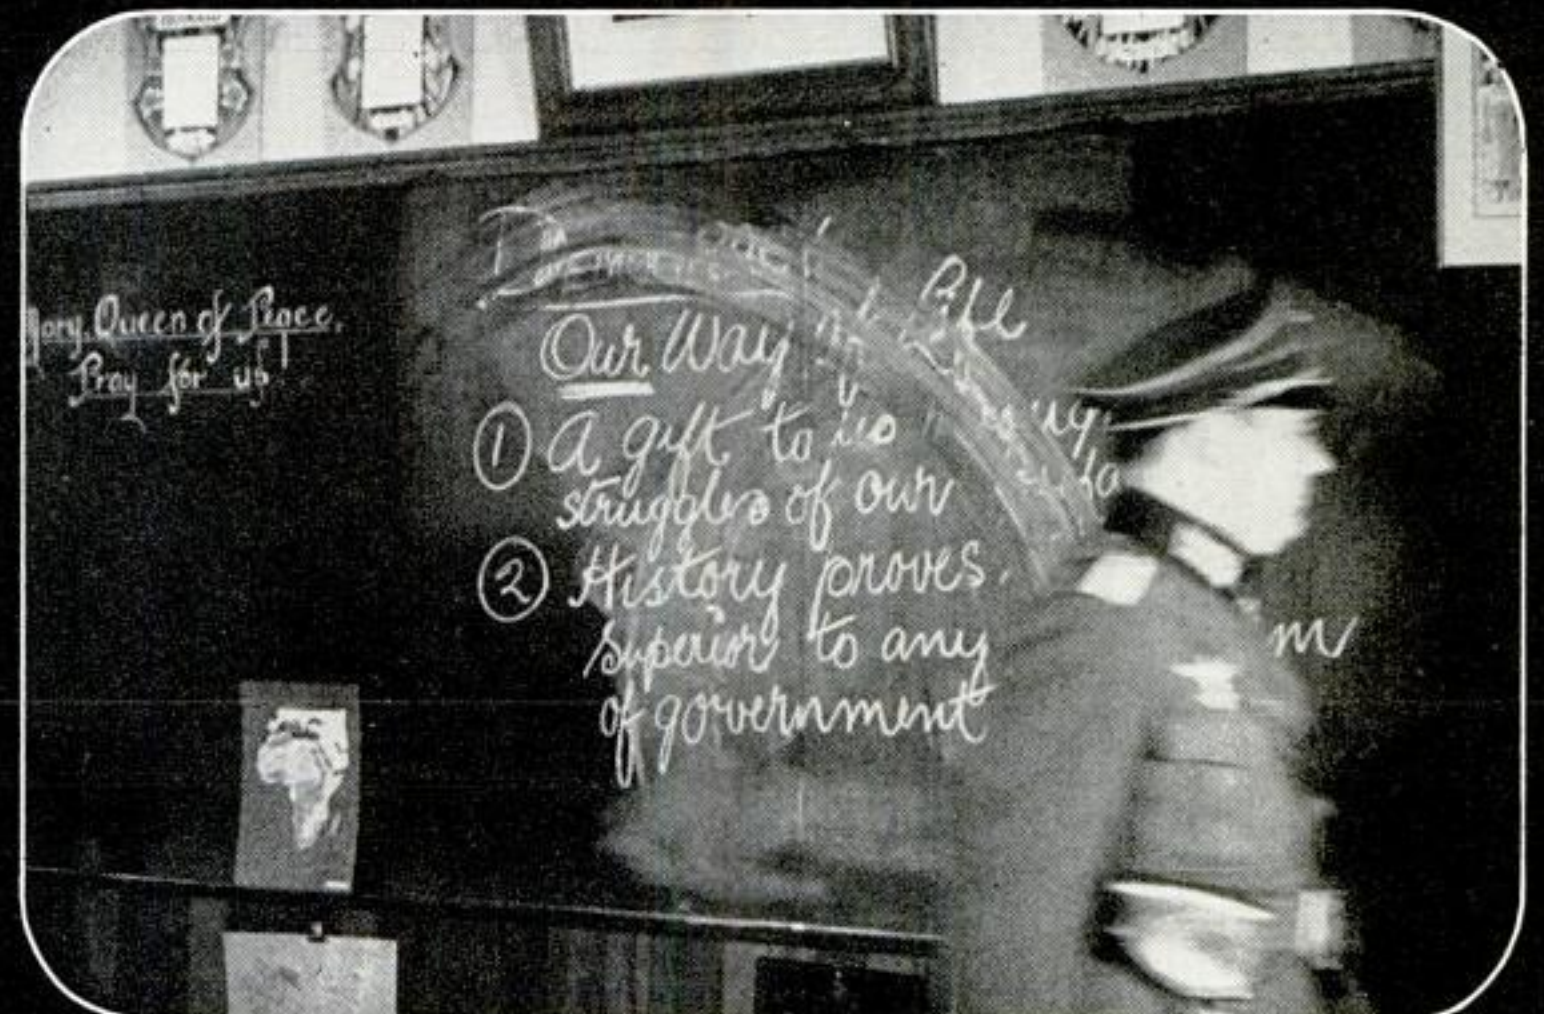 Mary, Queen of Peace,
Pray for us!
Our Way Life
① A gift to us
struggles of our
② History proves
superior to any
m
of government